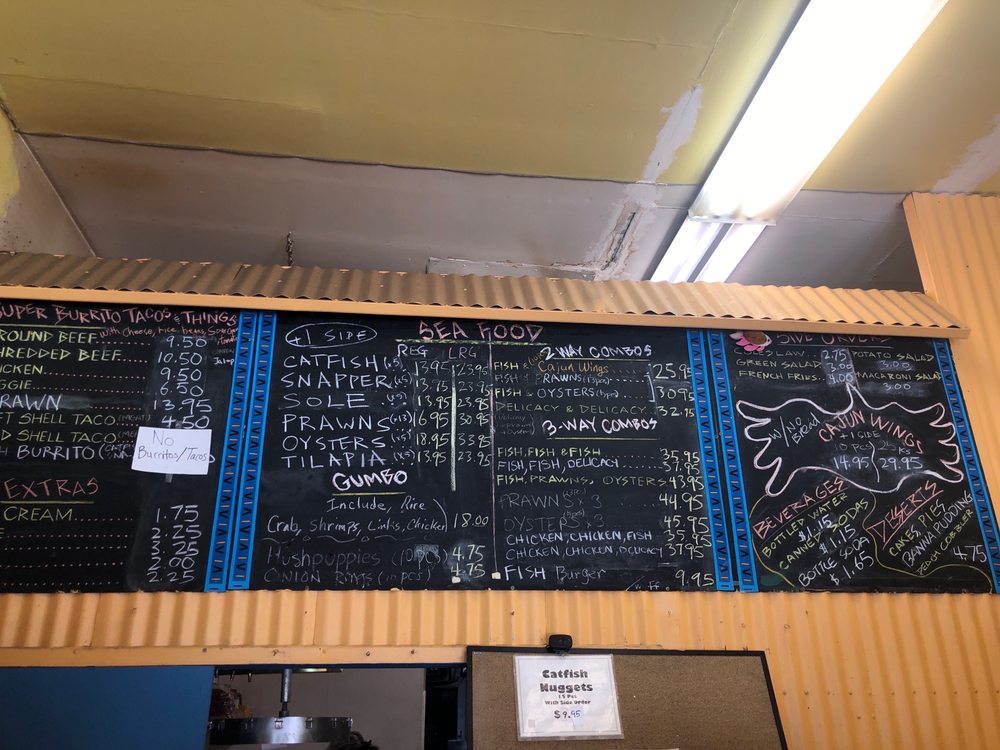 SUPER BURRITO TACOS & THINGS
with cheese, rice, beans,
ROUND BEEF.... 9.50
HREDDED BEEF... 10.50
ICKEN 9.50
GGIE 6.50
RAWN 13.95
FT SHELL TACO 4.50
D SHELL TACO
H BURRITO
No
Burritos/Tacos
EXTRAS
CREAM 1.75
2.25
3.25
2.00
2.25
+1 SIDE
SEA FOOD
REG LRG
CATFISH 13.95 23.95
SNAPPER 13.95 23.95
SOLE 13.95 23.95
PRAWNS 16.95 30.95
OYSTERS 18.95 33.95
TILAPIA 13.95 23.95
GUMBO
Include, Rice
Crab, Shrimps, Links, Chicken 18.00
Hushpuppies (10pcs) 4.75
ONION RINGS (10 PCS) 4.75
2 WAY COMBOS
FISH & Cajun Wings
FISH & PRAWNS 25.95
FISH & OYSTERS 30.95
DELICACY & DELICACY 32.75
3-WAY COMBOS
FISH, FISH & FISH 35.95
FISH, FISH, DELICACY 37.95
FISH, PRAWNS, OYSTERS 43.95
PRAWNS x 3 44.95
OYSTERS x 3 45.95
CHICKEN, CHICKEN, FISH 35.95
CHICKEN, CHICKEN, DELICACY 37.95
FISH Burger 9.95
SIDE ORDERS
COLESLAW 2.75
GREEN SALAD 3.00
FRENCH FRIES 4.00
POTATO SALAD
3.00
MACARONI SALAD
3.00
W/NO Bread
CAJUN WINGS
+1 SIDE
10 PCS
14.95 29.95
BEVERAGES
BOTTLED WATER
$1.15
CANNED SODAS
$1.15
BOTTLE SODA
$1.65
DESSERTS
CAKES, PIES
BANNA PUDDING
PEACH COBBLER
4.75
Catfish
Nuggets
15 Pcs
With Side Order
$9.95